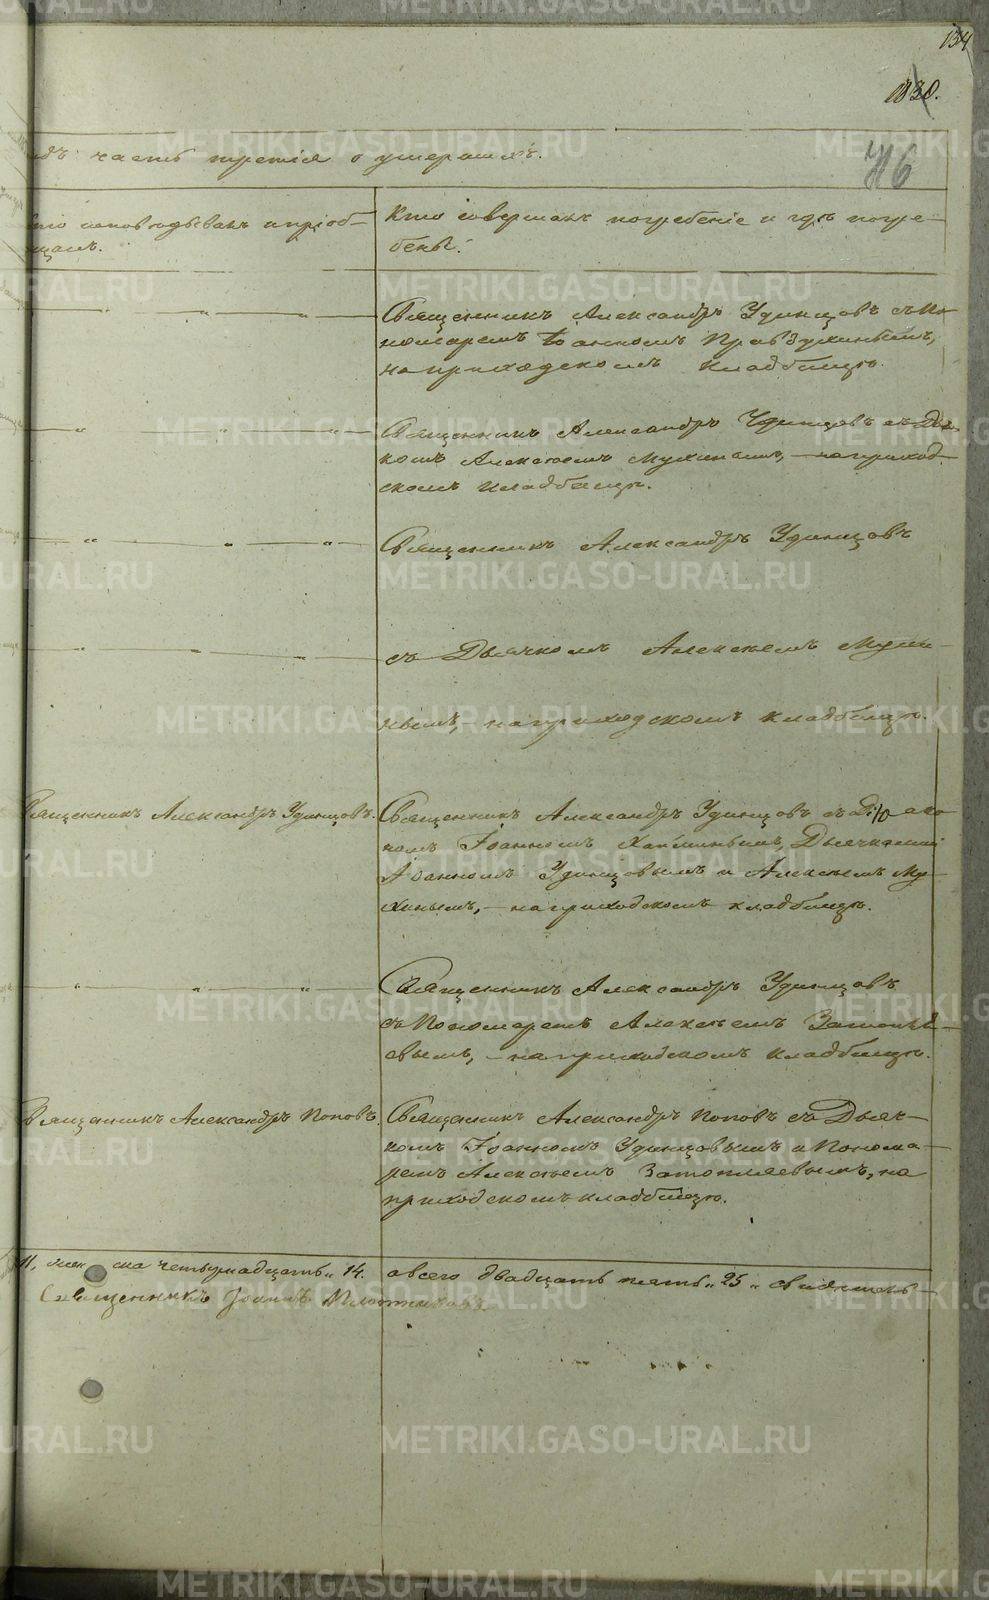 134
1830.
одъ часть третія о умершихъ.
716
Кто исповѣдывалъ и пріоб-
щалъ.
Кто совершалъ погребеніе и гдѣ погре-
бены.
Священникъ Александръ Удинцовъ съ По-
номаремъ Іоанномъ
на приходскомъ кладбищѣ.
Священникъ Александръ Удинцовъ съ Дьяч-
комъ Алексѣемъ Мухинымъ, на приход-
скомъ кладбищѣ.
Священникъ Александръ Удинцовъ
съ Дьячкомъ Алексѣемъ Мухи-
нымъ, на приходскомъ кладбищѣ.
Священникъ Александръ Удинцовъ.
Священникъ Александръ Удинцовъ съ Діяко-
номъ Іоанномъ Дьячками
Іоанномъ Удинцовымъ и Алексѣемъ Му-
хинымъ, на приходскомъ кладбищѣ.
Священникъ Александръ Удинцовъ
съ Пономаремъ Алексѣемъ Затопля-
евымъ, на приходскомъ кладбищѣ.
Священникъ Александръ Поповъ.
Священникъ Александръ Поповъ съ Дьяч-
комъ Іоанномъ Удинцовымъ и Понома-
ремъ Алексѣемъ Затопляевымъ, на
приходскомъ кладбищѣ.
11, женска четырнадцать „14.
а всего двадцать пять „25„
Священникъ Іоаннъ Плотниковъ
METRIKI.GASO-URAL.RU